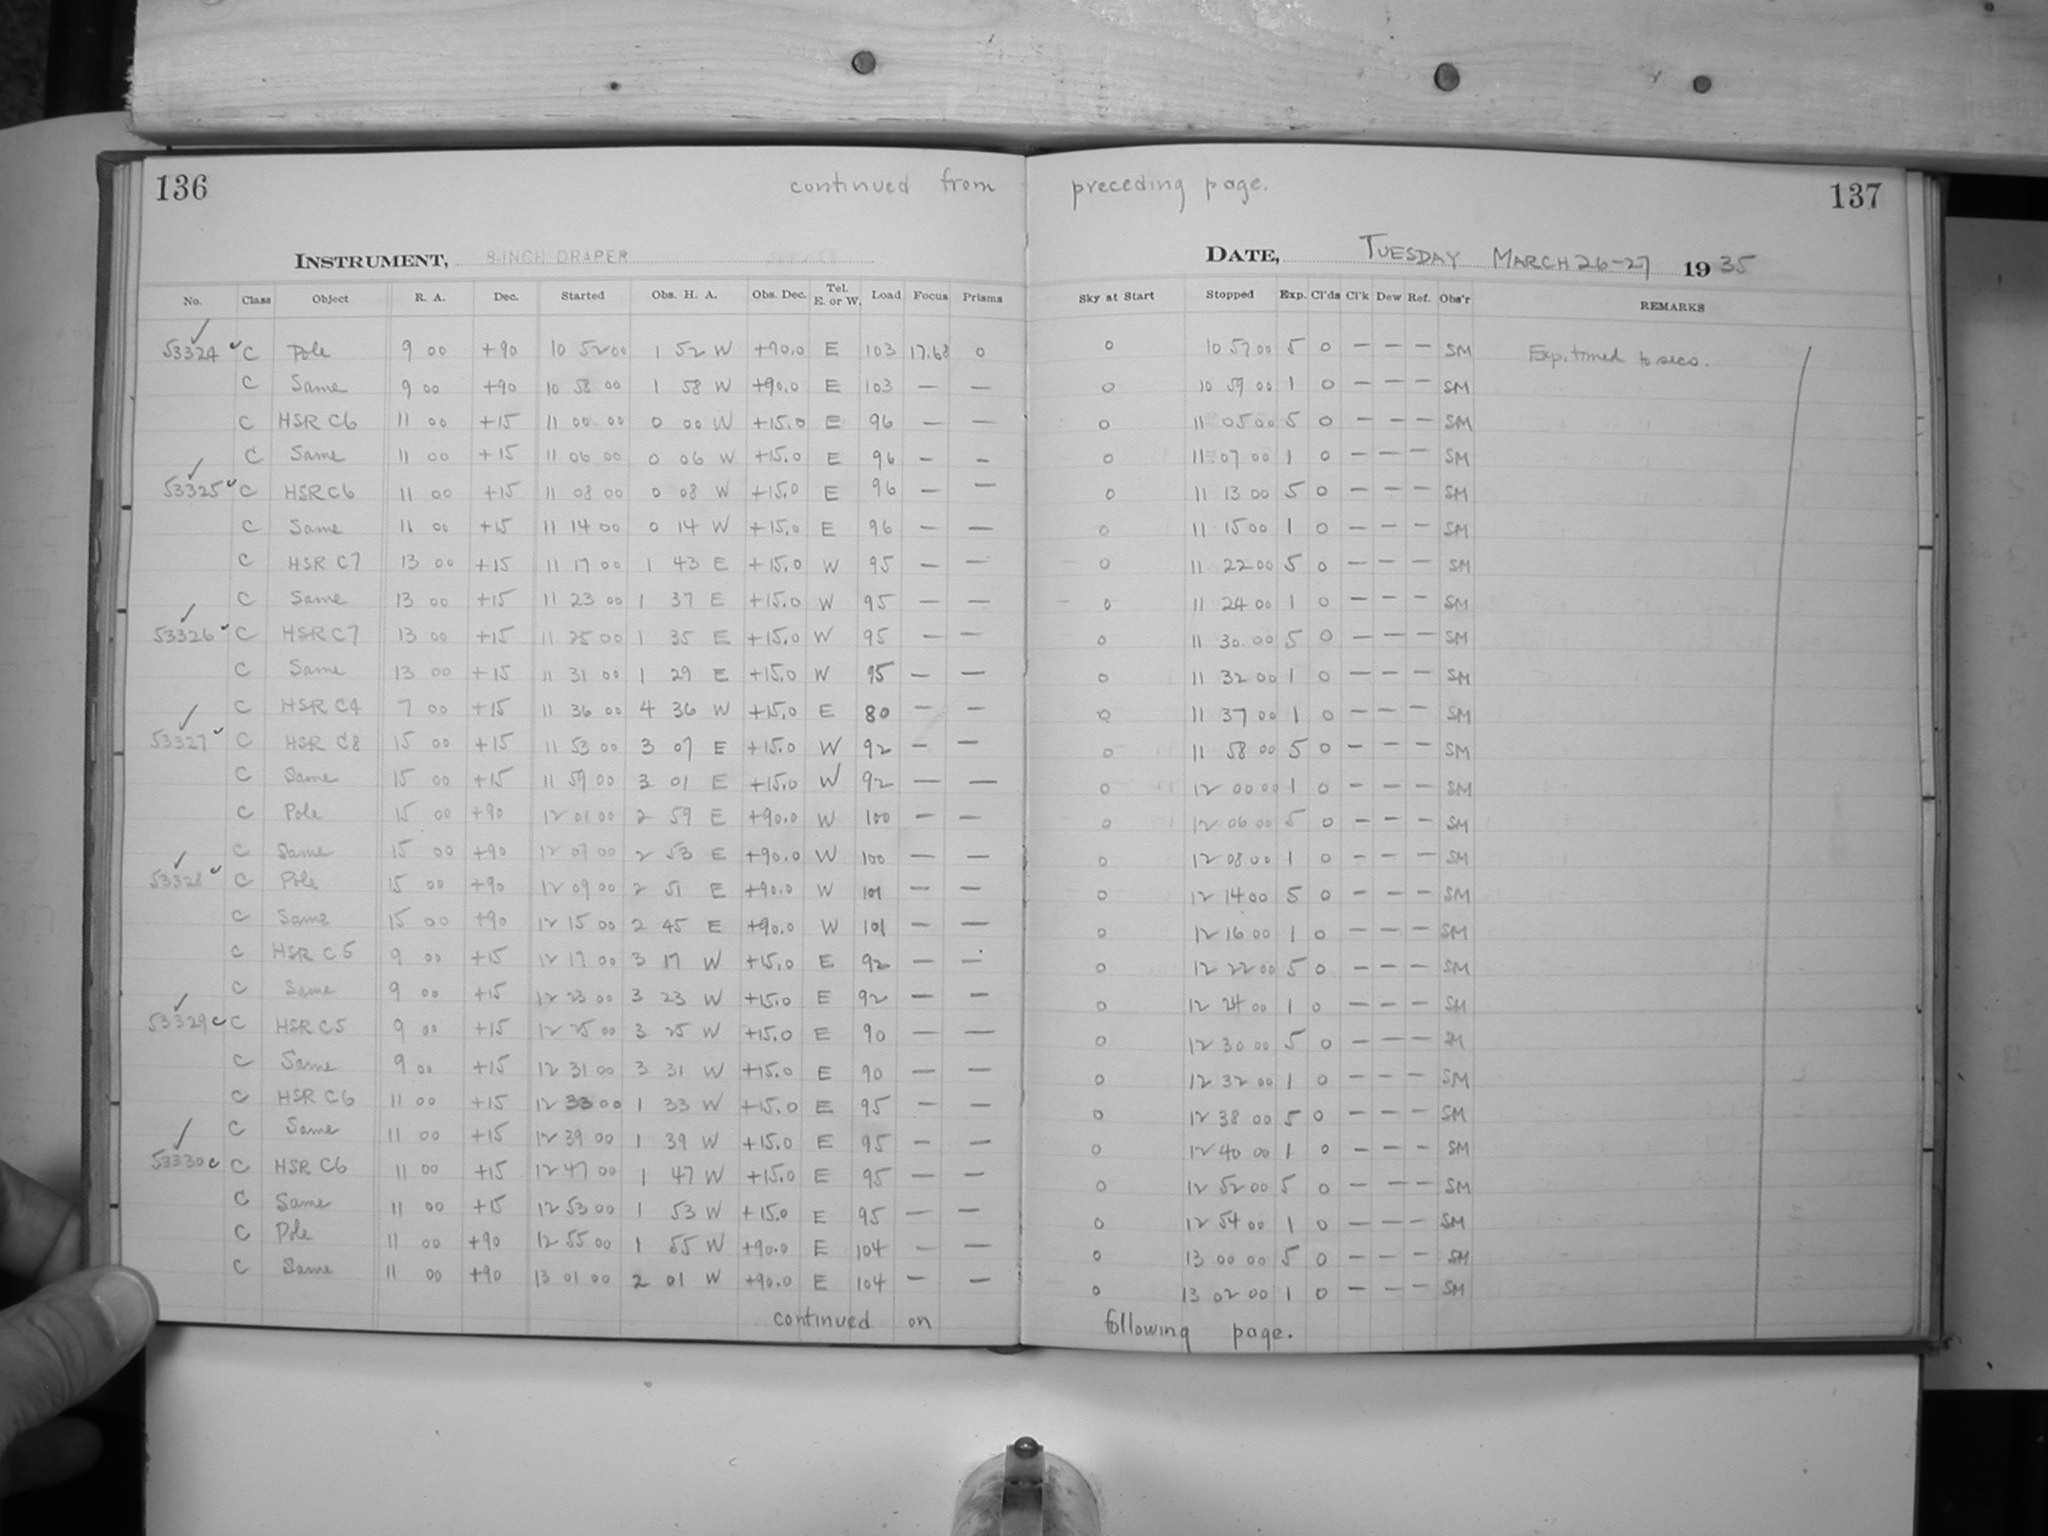 136 continued from preceding page. 137
INSTRUMENT, 8-INCH DRAPER DATE, TUESDAY MARCH 26-27 1935
No. Class Object R. A. Dec. Started Obs. H. A. Obs. Dec. Tel. E. or W. Load Focus Prisms Sky at Start Stopped Exp. Cl'ds Cl'k Dew Ref. Obs'r REMARKS
53324 C Pole 9 00 +90 10 52 00 1 52 W +90.0 E 103 17.68 0 0 10 57 00 5 0 — — — SM Exp. timed to secs.
C Same 9 00 +90 10 58 00 1 58 W +90.0 E 103 — — 0 10 59 00 1 0 — — — SM
C HSR C6 11 00 +15 11 00 00 0 00 W +15.0 E 96 — — 0 11 05 00 5 0 — — — SM
C Same 11 00 +15 11 06 00 0 06 W +15.0 E 96 — — 0 11 07 00 1 0 — — — SM
53325 C HSR C6 11 00 +15 11 08 00 0 08 W +15.0 E 96 — — 0 11 13 00 5 0 — — — SM
C Same 11 00 +15 11 14 00 0 14 W +15.0 E 96 — — 0 11 15 00 1 0 — — — SM
C HSR C7 13 00 +15 11 17 00 1 43 E +15.0 W 95 — — 0 11 22 00 5 0 — — — SM
C Same 13 00 +15 11 23 00 1 37 E +15.0 W 95 — — 0 11 24 00 1 0 — — — SM
53326 C HSR C7 13 00 +15 11 25 00 1 35 E +15.0 W 95 — — 0 11 30 00 5 0 — — — SM
C Same 13 00 +15 11 31 00 1 29 E +15.0 W 95 — — 0 11 32 00 1 0 — — — SM
C HSR C4 7 00 +15 11 36 00 4 36 W +15.0 E 80 — — 0 11 37 00 1 0 — — — SM
53327 C HSR C8 15 00 +15 11 53 00 3 07 E +15.0 W 92 — — 0 11 58 00 5 0 — — — SM
C Same 15 00 +15 11 59 00 3 01 E +15.0 W 92 — — 0 12 00 00 1 0 — — — SM
C Pole 15 00 +90 12 01 00 2 59 E +90.0 W 100 — — 0 12 06 00 5 0 — — — SM
C Same 15 00 +90 12 07 00 2 53 E +90.0 W 100 — — 0 12 08 00 1 0 — — — SM
53328 C Pole 15 00 +90 12 09 00 2 51 E +90.0 W 101 — — 0 12 14 00 5 0 — — — SM
C Same 15 00 +90 12 15 00 2 45 E +90.0 W 101 — — 0 12 16 00 1 0 — — — SM
C HSR C5 9 00 +15 12 17 00 3 17 W +15.0 E 92 — — 0 12 22 00 5 0 — — — SM
C Same 9 00 +15 12 23 00 3 23 W +15.0 E 92 — — 0 12 24 00 1 0 — — — SM
53329 C HSR C5 9 00 +15 12 25 00 3 25 W +15.0 E 90 — — 0 12 30 00 5 0 — — — SM
C Same 9 00 +15 12 31 00 3 31 W +15.0 E 90 — — 0 12 32 00 1 0 — — — SM
C HSR C6 11 00 +15 12 33 00 1 33 W +15.0 E 95 — — 0 12 38 00 5 0 — — — SM
C Same 11 00 +15 12 39 00 1 39 W +15.0 E 95 — — 0 12 40 00 1 0 — — — SM
53330 C HSR C6 11 00 +15 12 47 00 1 47 W +15.0 E 95 — — 0 12 52 00 5 0 — — — SM
C Same 11 00 +15 12 53 00 1 53 W +15.0 E 95 — — 0 12 54 00 1 0 — — — SM
C Pole 11 00 +90 12 55 00 1 55 W +90.0 E 104 — — 0 13 00 00 5 0 — — — SM
C Same 11 00 +90 13 01 00 2 01 W +90.0 E 104 — — 0 13 02 00 1 0 — — — SM
continued on following page.